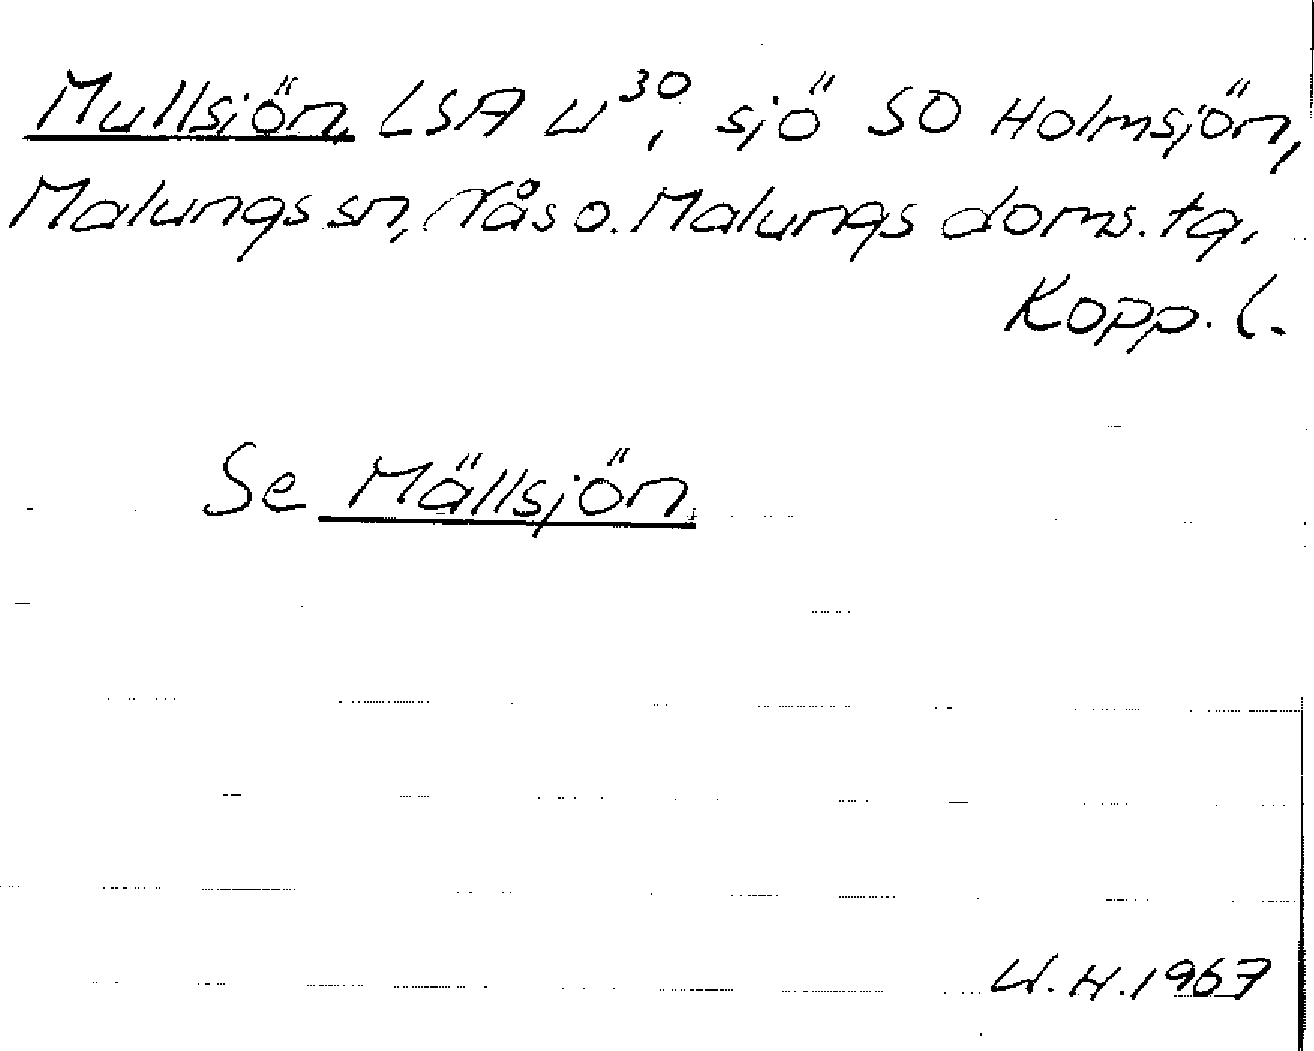 Mullsjön, LSA W³⁰, sjö SO Holmsjön,
Malungs sn, Nås o. Malungs doms. tg,
Kopp. l.
Se Mällsjön
W.H. 1967